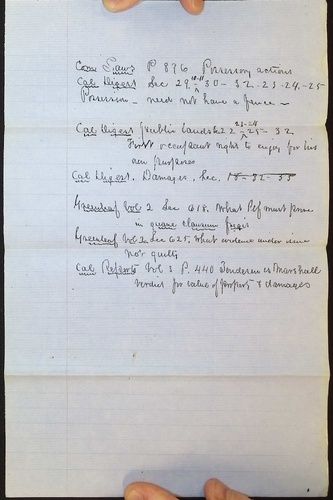 Com Laws P 876 Possessory actions
10-11
Cal Digest Sec 29 ^ 30 - 32 - 23 - 24 - 25
Possession - need not have a fence -
23-24
Cal Digest Public Lands Sec 22 ^ - 25 - 32
First occupant right to enjoy for his
own purposes
Cal Digest. Damages, Sec. 18 - 32 - 33
Greenleaf Vol 2 Sec 618. What Plf must prove
in quare clausum fregit
Greenleaf Vol 2 Sec 625, What evidence under issue
not guilty
Cal Reports Vol 3 P. 440 vs Marshall
verdict for value of property & damages